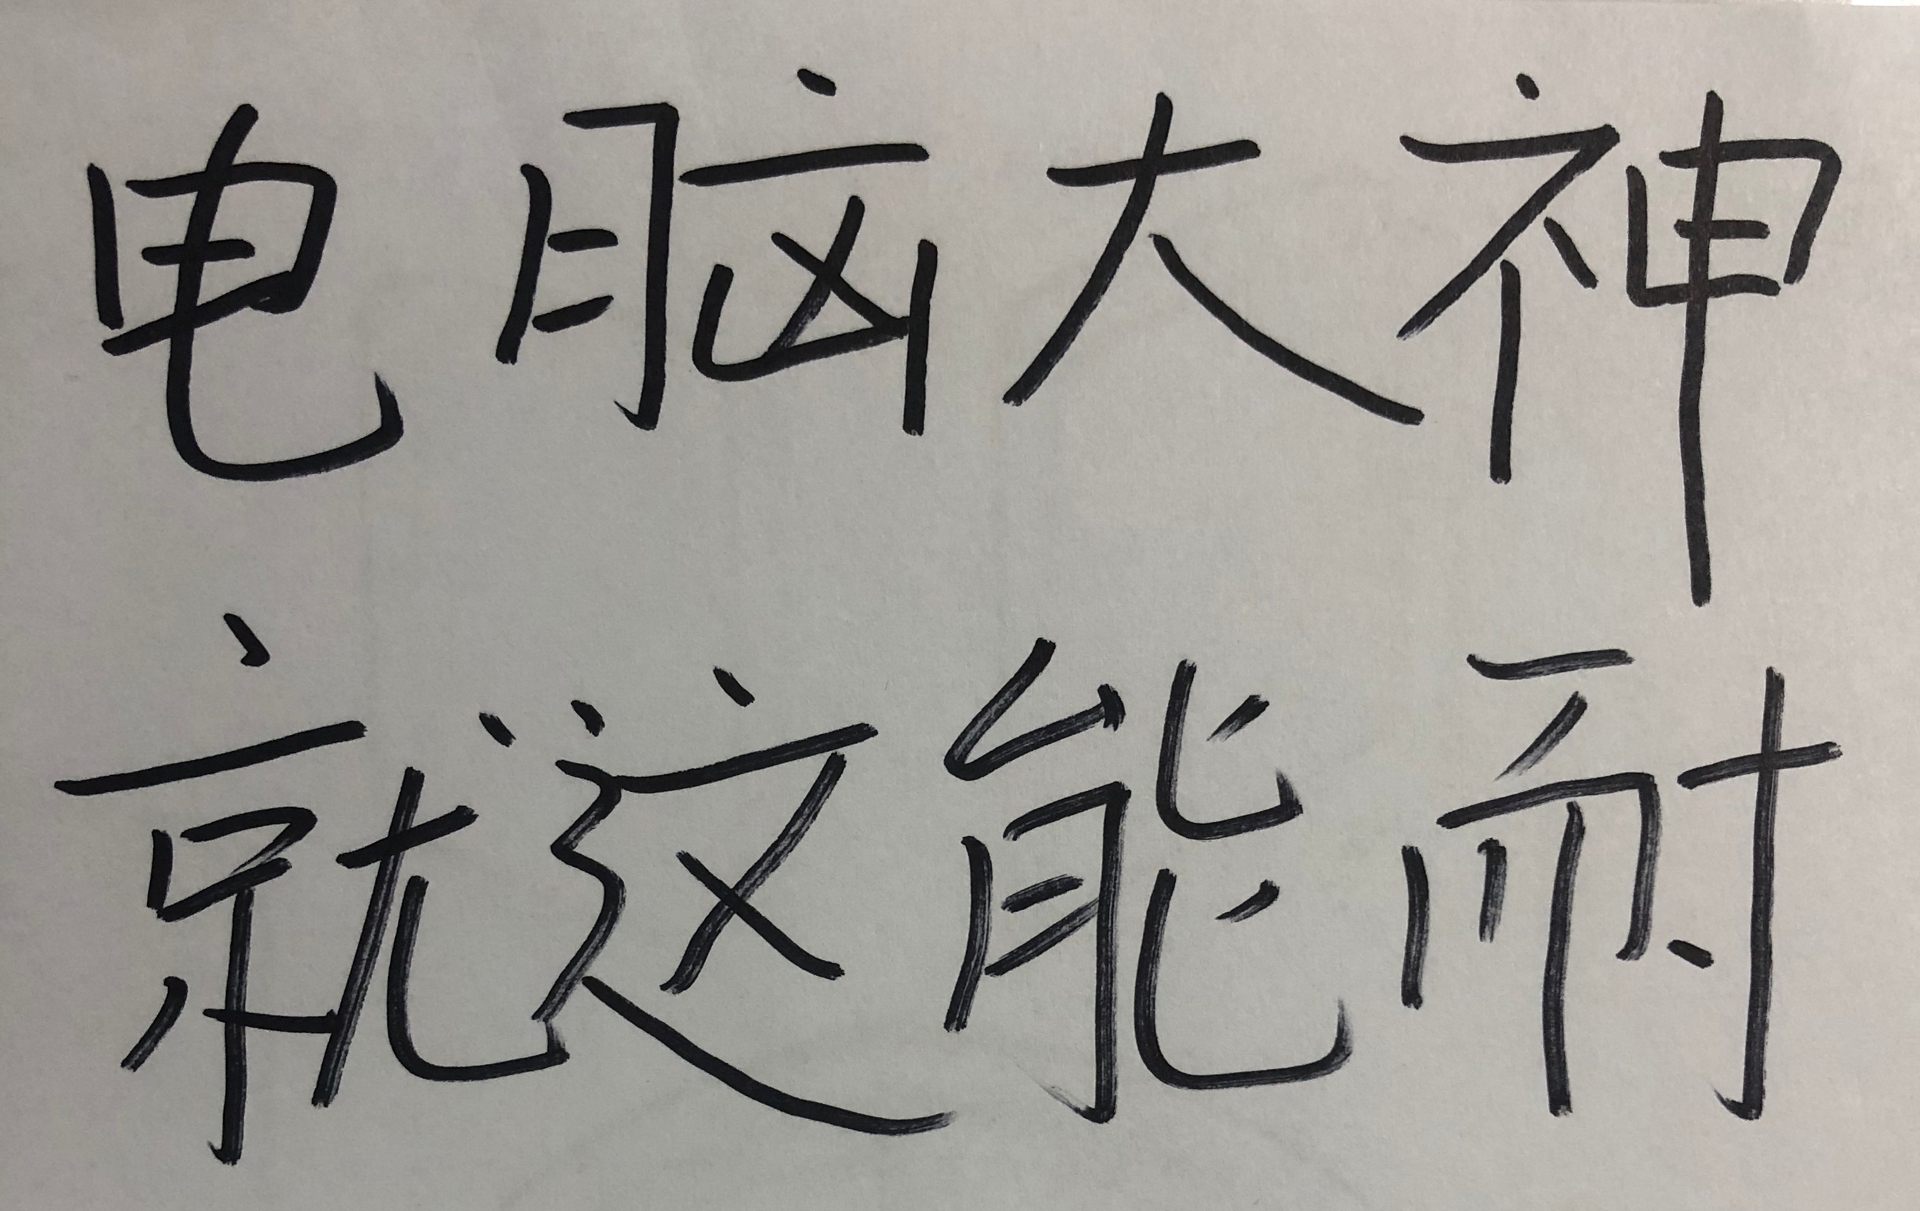 电脑大神
就这能耐